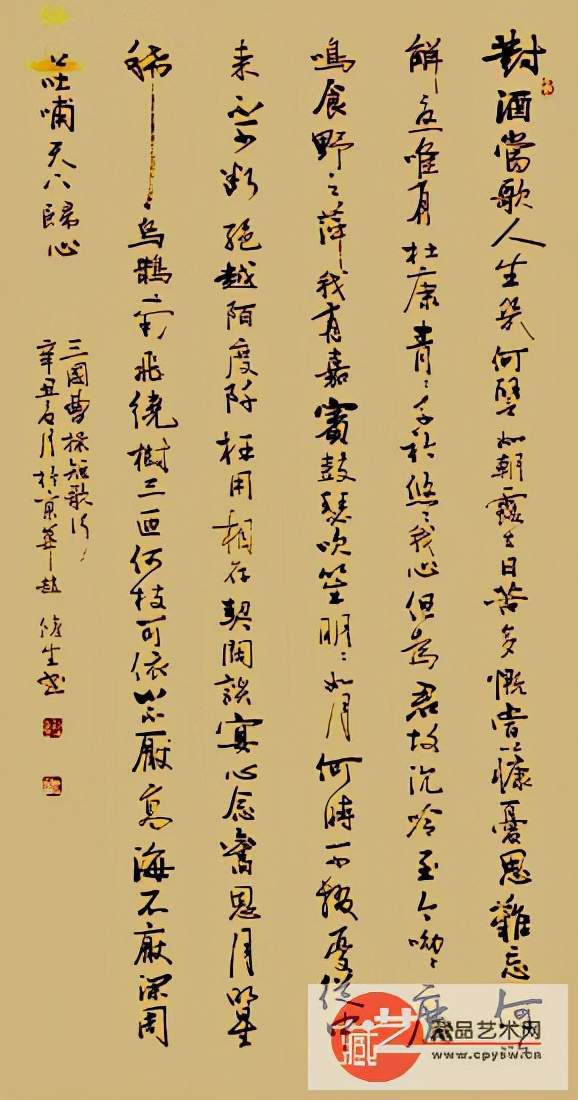 對酒當歌人生幾何譬如朝露去日苦多慨當以慷憂思難忘何
解忧唯有杜康青〻子衿悠〻我心但為君故沉吟至今呦〻鹿
鳴食野之苹我有嘉賓鼓瑟吹笙明〻如月何時可掇憂從中
来不可断絕越陌度阡枉用相存契闊談宴心念舊恩月明星
稀烏鵲南飛繞樹三匝何枝可依山不厭高海不厭深周
吐哺天下歸心
三國曹操短歌行
辛丑 月於京華趙 生書
藏艺
藏品艺术网
www.cpysw.cn